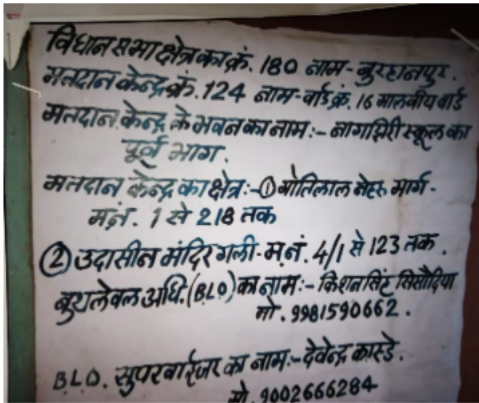 विधानसभा क्षेत्र का क्रं. 180 नाम- बुरहानपुर.
मतदान केन्द्र क्रं. 124 नाम-वार्ड क्रं. 16 मालवीय वार्ड
मतदान केन्द्र के भवन का नाम:- नागझिरी स्कूल का
पूर्व भाग.
मतदान केन्द्र का क्षेत्र:- ① मोतिलाल नेहरू मार्ग-
म.नं. 1 से 218 तक
② उदासीन मंदिर गली- म.नं. 4/1 से 123 तक.
बुथ लेवल अधि. (B.L.O) का नाम:- किशन सिंह सिसौदिया
मो. 9981590662.
B.L.O. सुपरवाईजर का नाम:- देवेन्द्र कास्डे.
मो. 9002666284